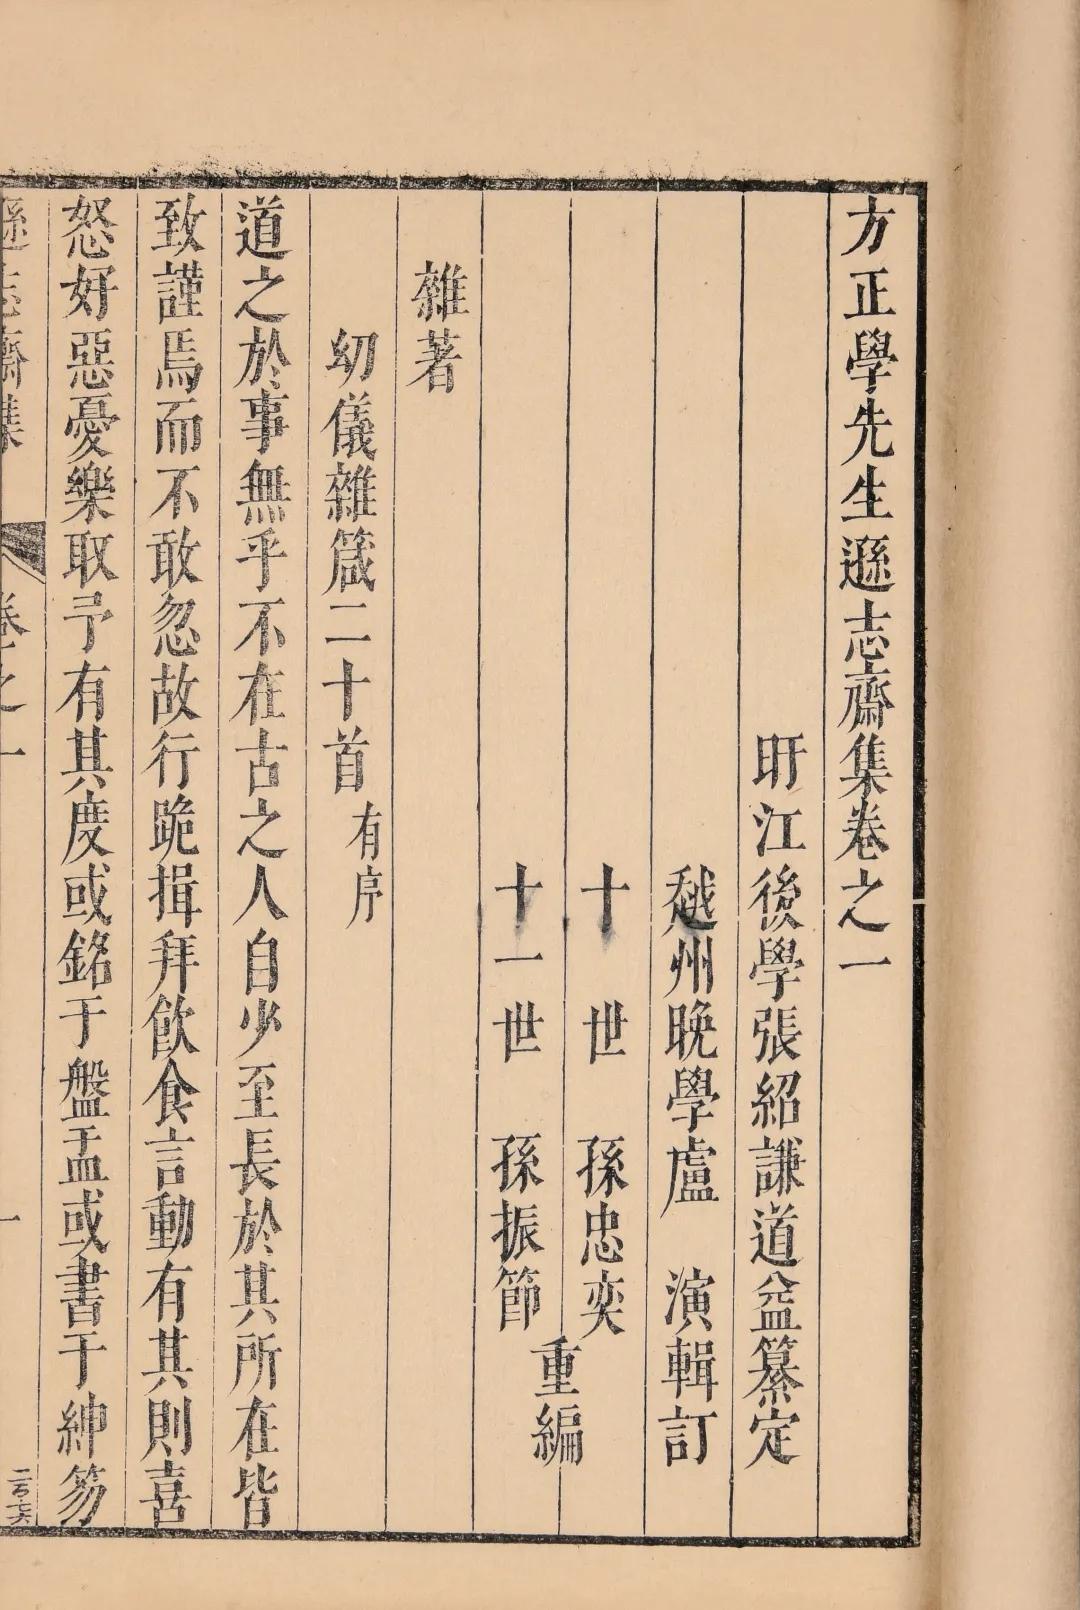 方正學先生遜志齋集卷之一
盱江後學張紹謙道益纂定
越州晚學盧　演輯訂
十　世　孫忠奕
十一世　孫振節
重編
雜著
幼儀雜箴二十首有序
道之於事無乎不在古之人自少至長於其所在皆
致謹焉而不敢忽故行跪揖拜飲食言動有其則喜
怒好惡憂樂取予有其度或銘于盤盂或書于紳笏
遜志齋集　卷之一　一